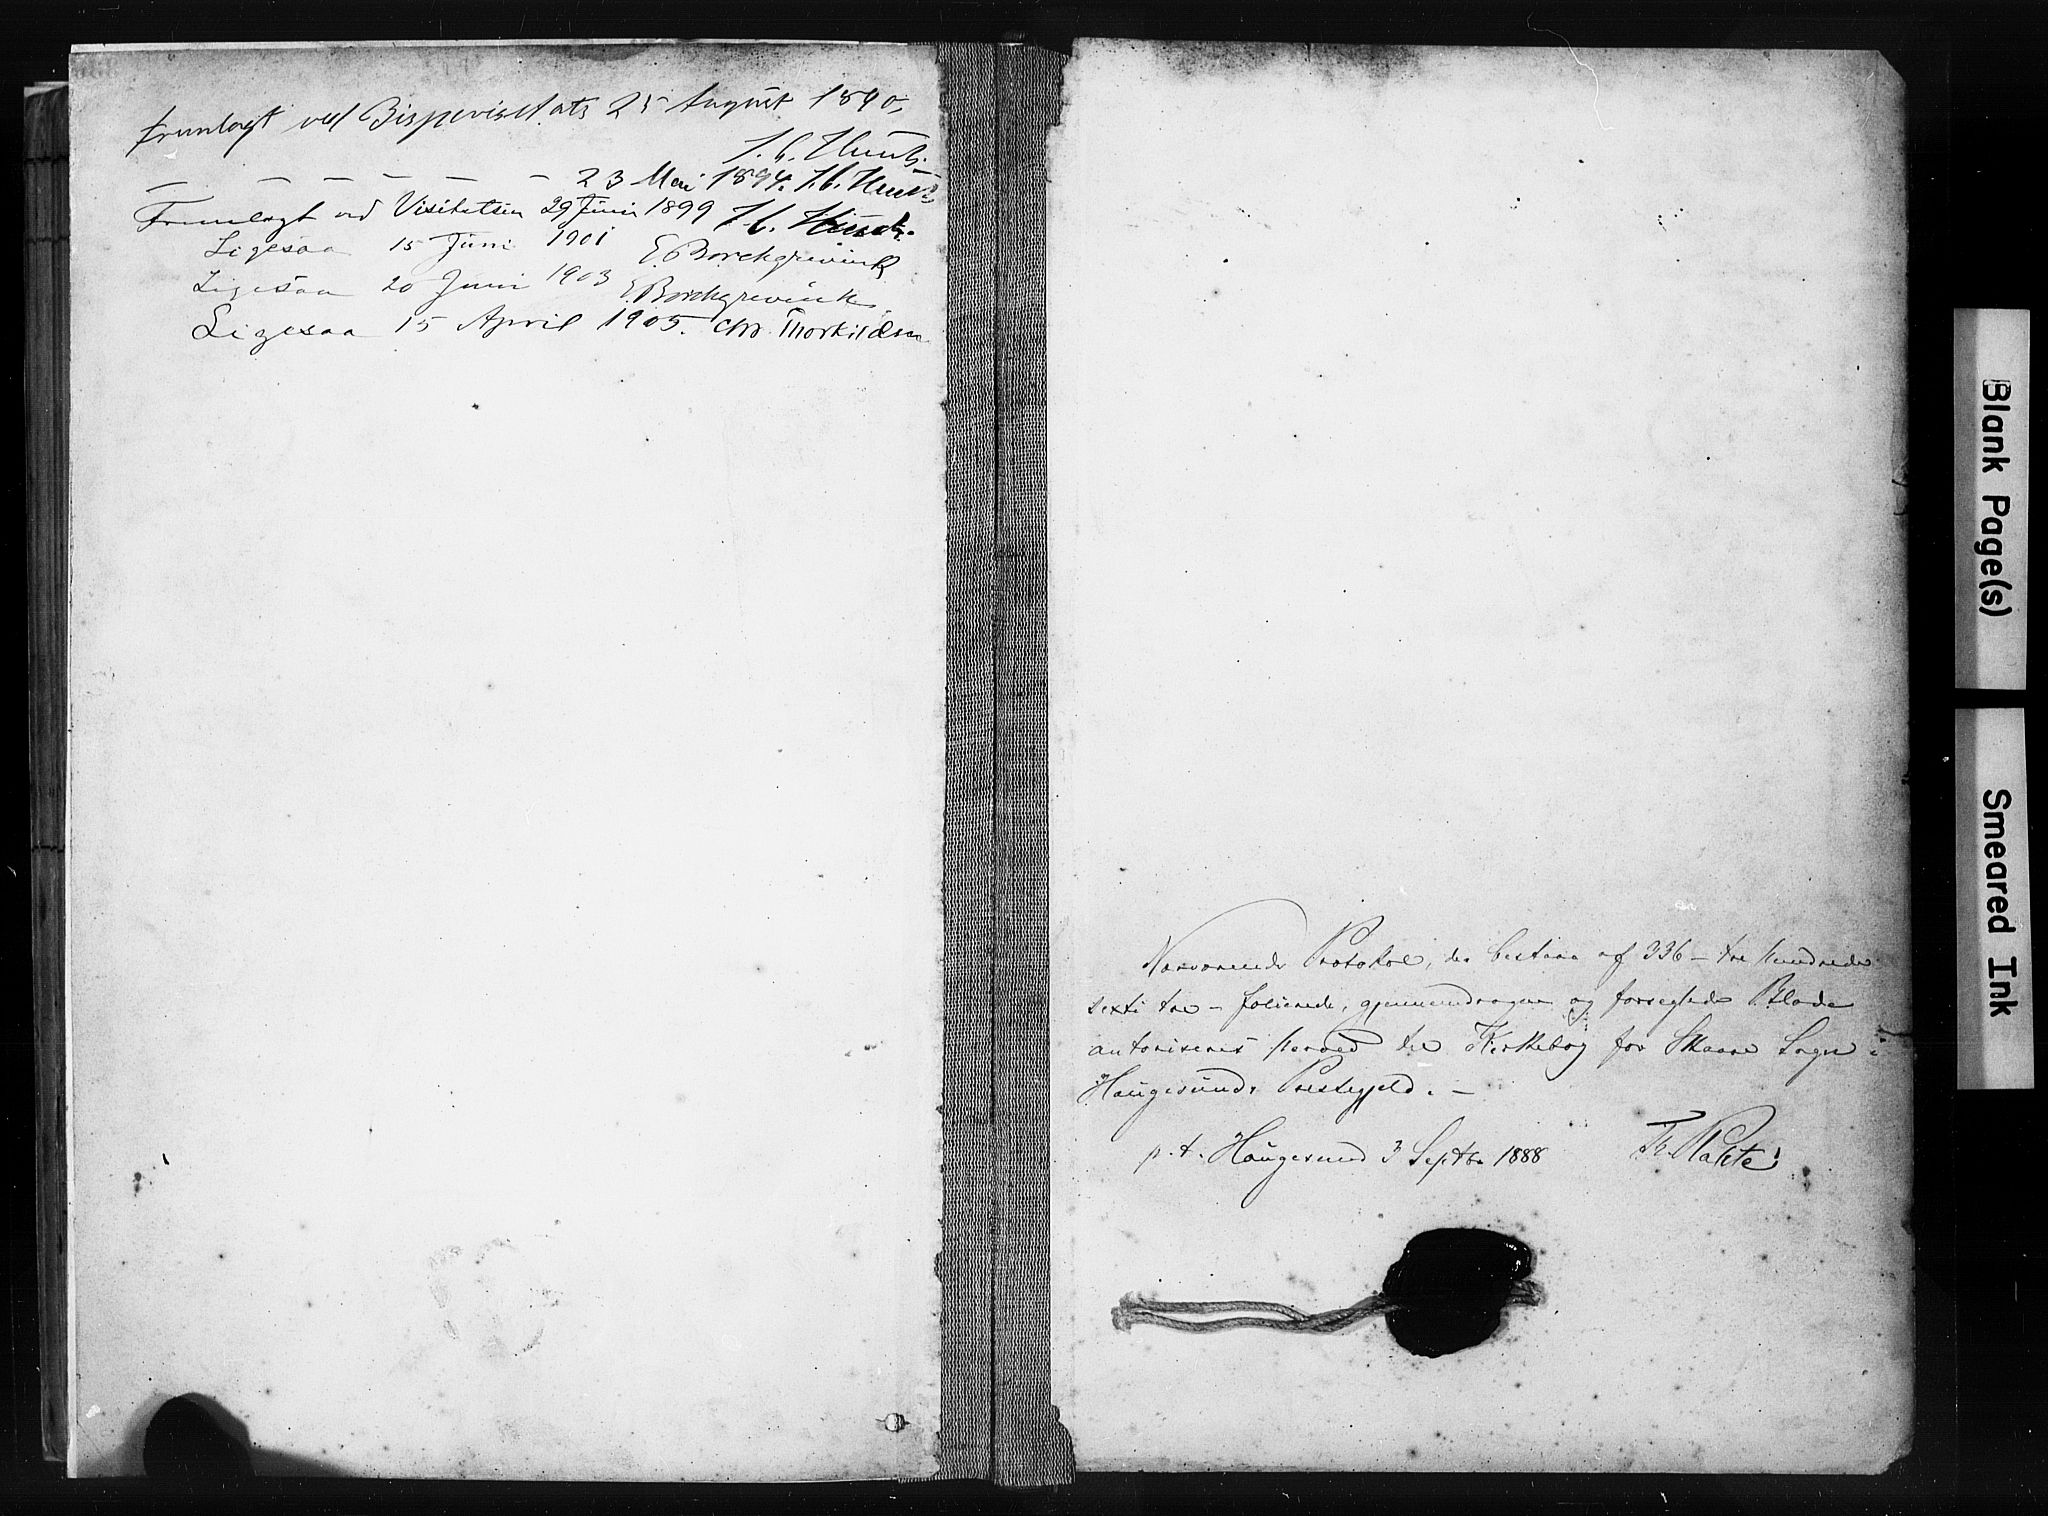 Fremlagt ved Bispevisitats 25 August 1890,
J. C. Heuch.
– – – – – – 23 Mai 1894. J. C. Heuch
Fremlagt ved Visitatsen 29 Juni 1899 J. C. Heuch.
Ligesaa 15 Juni 1901 E. Borchgrevink
Ligesaa 20 Juni 1903 E. Borchgrevink
Ligesaa 15 April 1905. Chr. Thorkildsen
Nærværende Protokol, der bestaar af 336 – tre hundrede
sexti tre – folierede, gjennemdragne og forseglede Blade
autoriseres herved til Kirkebog for Skaare Sogn i
Haugesunds Prestegjeld. –
p. t. Haugesund 3 Septbr 1888
Blank Page(s)
Smeared Ink